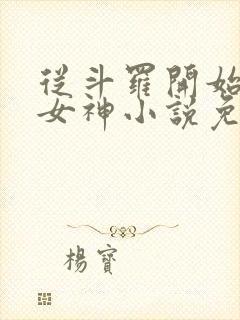 從斗羅開始
女神小說免
楊寶